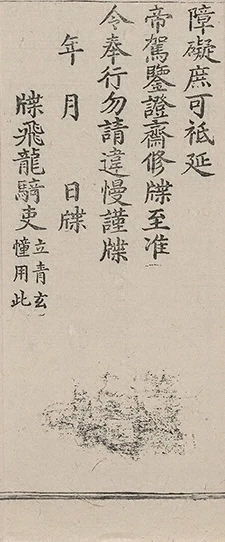 障礙庶可祗延
帝駕鑒證齋修牒至准
令奉行勿請違慢謹牒
年 月 日牒
牒飛龍騎吏 立青玄
幢用此